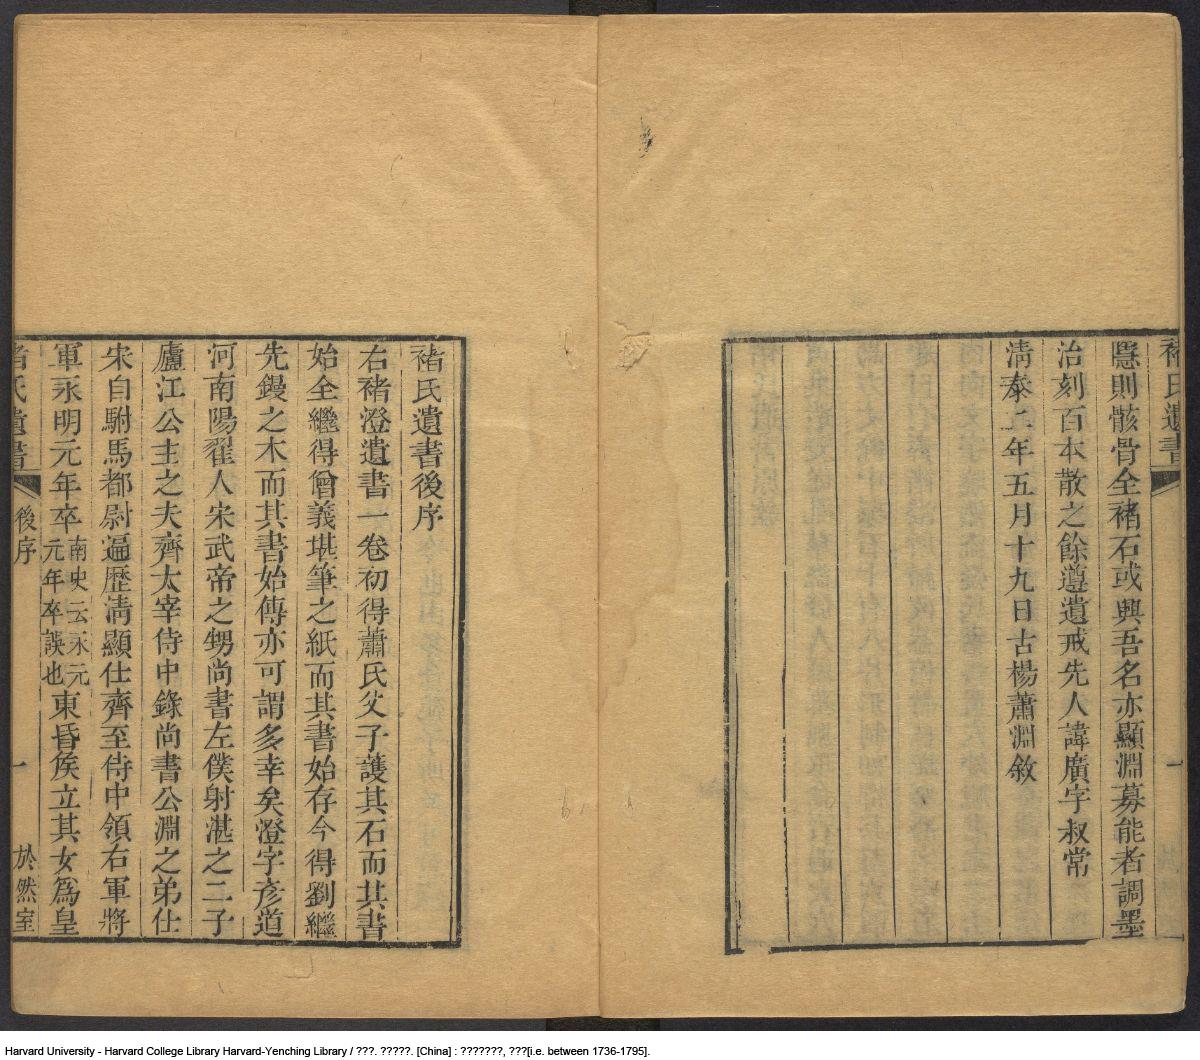 褚氏遺書
一
隱則骸骨全褚石或興吾名亦顯淵募能者調墨
治刻百本散之餘遵遺戒先人諱廣字叔常
清泰二年五月十九日古楊蕭淵敘
褚氏遺書後序
右褚澄遺書一卷初得蕭氏父子護其石而其書
始全繼得僧義堪筆之紙而其書始存今得劉繼
先鋟之木而其書始傳亦可謂多幸矣澄字彥道
河南陽翟人宋武帝之甥尚書左僕射湛之二子
廬江公主之夫齊太宰侍中錄尚書公淵之弟仕
宋自駙馬都尉遍歷清顯仕齊至侍中領右軍將
軍永明元年卒南史云永元元年卒誤也東昏侯立其女為皇
褚氏遺書
後序
一
於然室
Harvard University - Harvard College Library Harvard-Yenching Library / ???. ?????. [China] : ???????, ???[i.e. between 1736-1795].